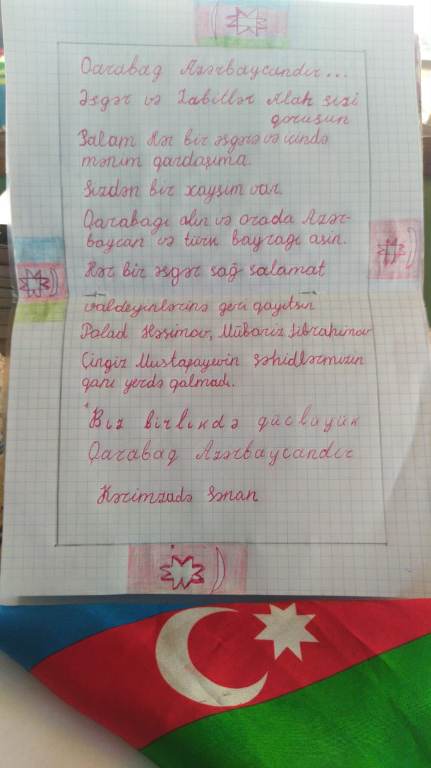 Qarabağ Azərbaycandır...
Əsgər və Zabitlər Allah sizi
qorusun
Salam Hər bir əsgərə və içində
mənim qardaşıma.
Sizdən bir xayşım var.
Qarabağı alın və orada Azər-
baycan və türk bayrağı asın.
Hər bir əsgər sağ salamat
valdeyinlərinə geri qayıtsın
Polad Həşimov, Mübariz İbrahimov
Çingiz Mustafayevin şəhidlərimizin
qanı yerdə qalmadı.
Biz birlikdə güclüyük
Qarabağ Azərbaycandır
Kərimzadə Sənan